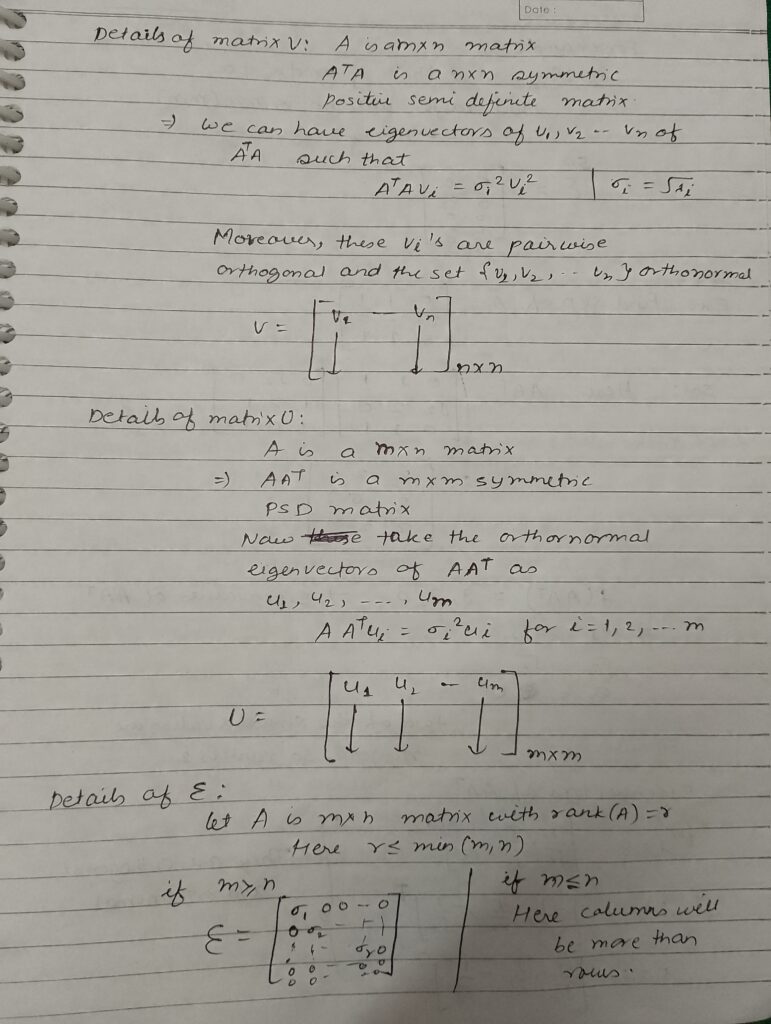 Date :
Details of matrix V: A is a mxn matrix
AᵀA is a nxn symmetric
positive semi definite matrix
⇒ we can have eigenvectors of v₁, v₂ -- vn of
AᵀA such that
AᵀAVᵢ = σᵢ²Vᵢ² | σᵢ = √λᵢ
Moreover, these Vᵢ's are pairwise
orthogonal and the set {v₁, v₂, -- vn} orthonormal
V = [v₁ — vn] nxn
Details of matrix U:
A is a mxn matrix
⇒ AAᵀ is a mxm symmetric
PSD matrix
Now take the orthornormal
eigenvectors of AAᵀ as
u₁, u₂, ---, um
A Aᵀuᵢ = σᵢ²uᵢ for i=1,2, --- m
U = [u₁ u₂ — um] mxm
Details of Σ:
let A is mxn matrix with rank(A)=r
Here r ≤ min(m,n)
if m≥n | if m≤n
Here columns will
be more than
rows.
Σ =
σ₁ 0 0 -- 0
0 σ₂ -
σr 0
0 0 - 0 0
0 0 0 0